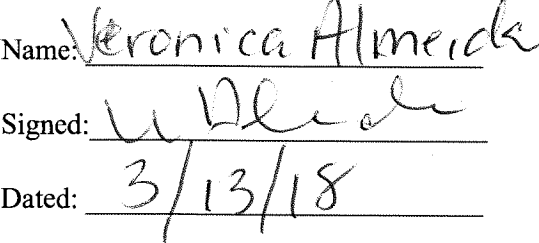 Name: Veronica Almeida
Signed:
Dated: 3/13/18